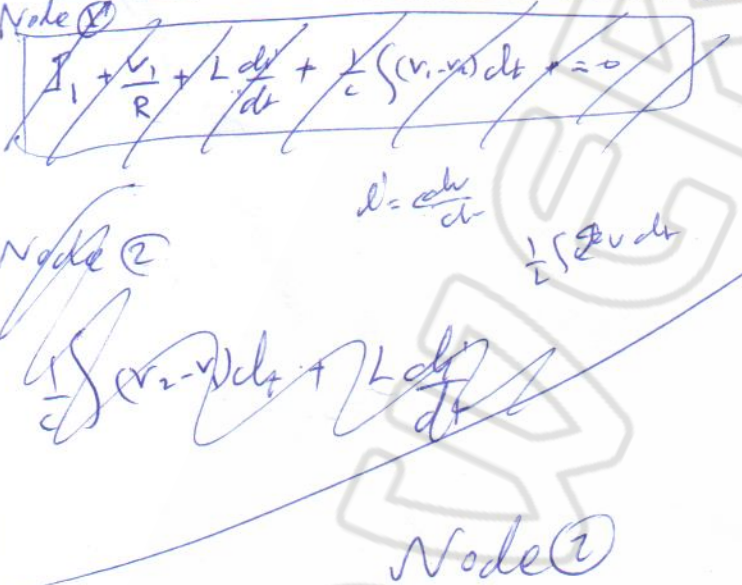 Node ①
I₁ + V₁/R + L di/dt + 1/C ∫(V₁-V₂) dt = 0
i = c dv/dt
Node ②
1/L ∫ v dt
1/C ∫ (V₂-V₁) dt + L di/dt
Node ②